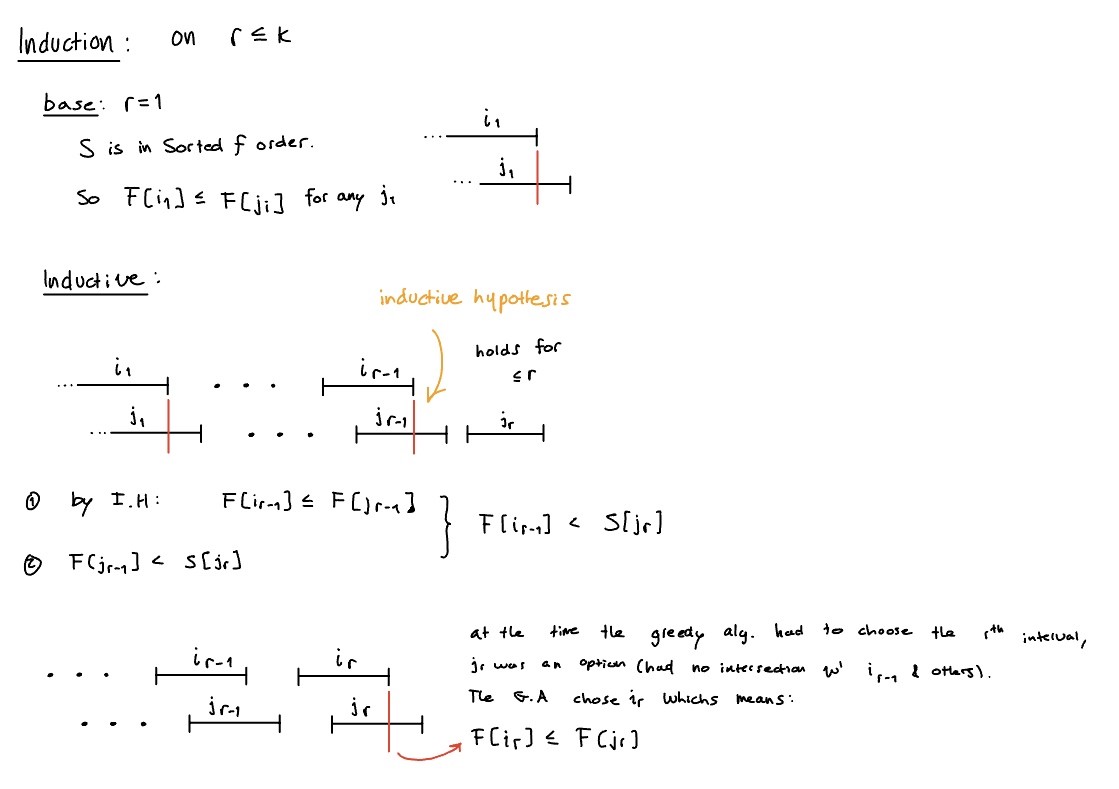 Induction: on r ≤ k
base: r=1
S is in sorted f order.
So F[i₁] ≤ F[jᵢ] for any j₁
... i₁
... j₁
Inductive:
inductive hypothesis
holds for
≤ r
... i₁ . . . iᵣ₋₁
... j₁ . . . jᵣ₋₁ jᵣ
① by I.H: F[iᵣ₋₁] ≤ F[jᵣ₋₁] } F[iᵣ₋₁] < S[jᵣ]
② F[jᵣ₋₁] < S[jᵣ]
. . . iᵣ₋₁ iᵣ
. . . jᵣ₋₁ jᵣ
at the time the greedy alg. had to choose the rᵗʰ interval,
jᵣ was an option (had no intersection w' iᵣ₋₁ & others).
The G.A chose iᵣ whichs means:
F[iᵣ] ≤ F[jᵣ]